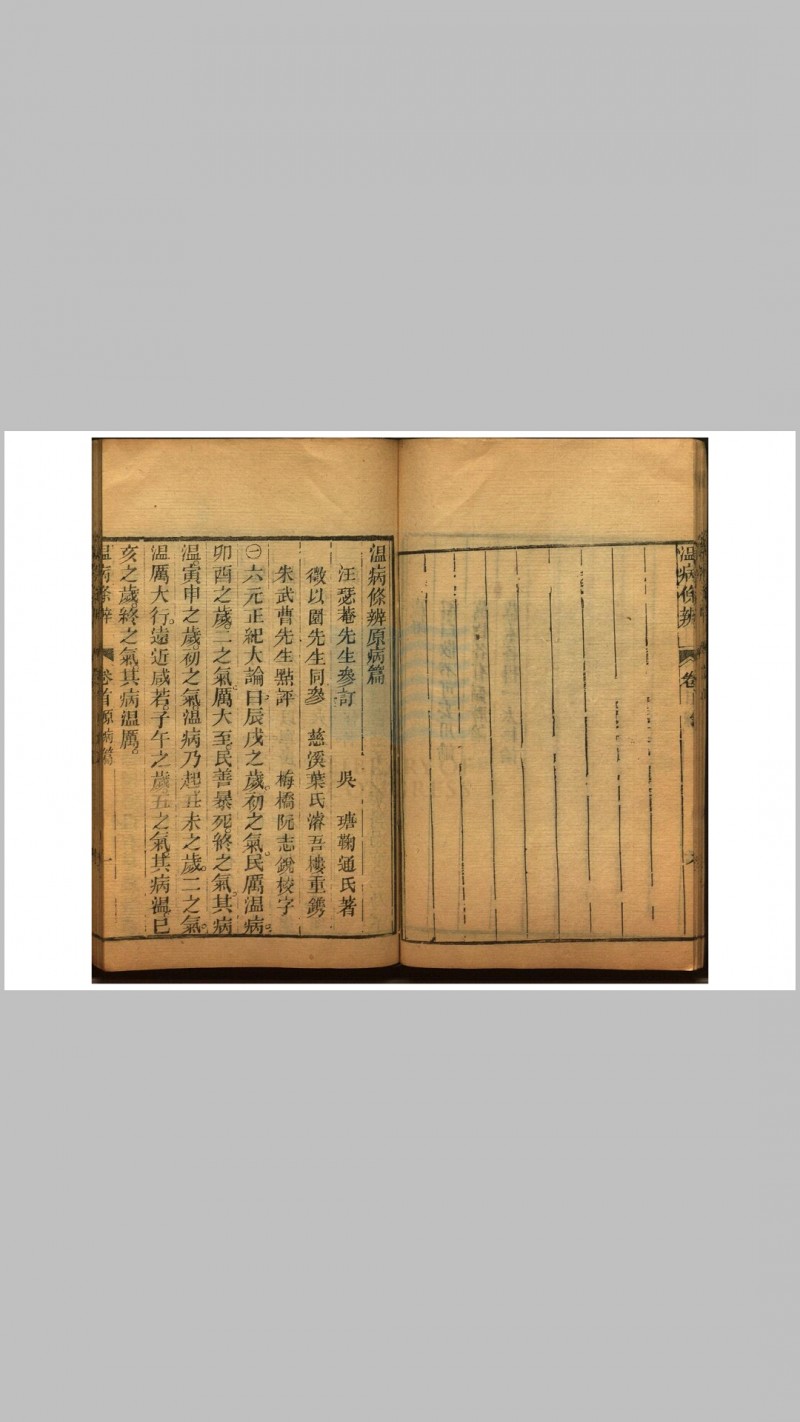 温病條辨
卷首
温病條辨原病篇
汪瑟菴先生參訂 吳 瑭鞠通氏著
徵以園先生同參 慈溪葉氏濬吾樓重鐫
朱武曹先生點評 梅橋阮志銳校字
㊀六元正紀大論曰。辰戌之歲。初之氣。民厲温病。
卯酉之歲。二之氣。厲大至。民善暴死。終之氣。其病
温。寅申之歲。初之氣。温病乃起。丑未之歲。二之氣。
温厲大行。遠近咸若。子午之歲。五之氣。其病温。巳
亥之歲。終之氣。其病温厲。
温病條辨 卷首原病篇 一